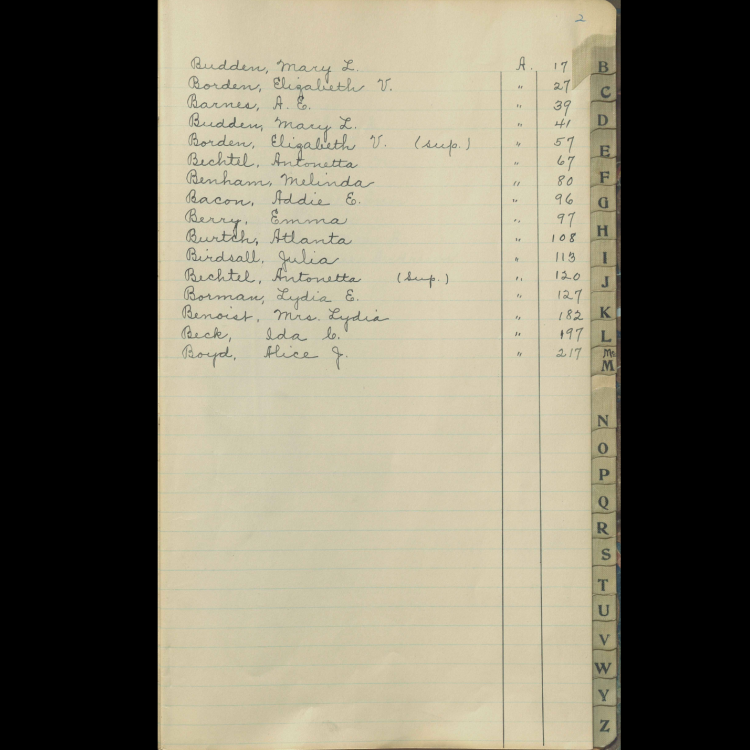 2
Budden, Mary L. A. 17
Borden, Elizabeth V. " 27
Barnes, A. E. " 39
Budden, Mary L. " 41
Borden, Elizabeth V. (Sup.) " 57
Bechtel, Antonetta " 67
Benham, Melinda " 80
Bacon, Addie E. " 96
Berry, Emma " 97
Burtch, Atlanta " 108
Birdsall, Julia " 113
Bechtel, Antonetta (Sup.) " 120
Borman, Lydia E. " 127
Benoist, Mrs. Lydia " 182
Beck, Ida C. " 197
Boyd, Alice J. " 217
B
C
D
E
F
G
H
I
J
K
L
Mc
M
N
O
P
Q
R
S
T
U
V
W
Y
Z